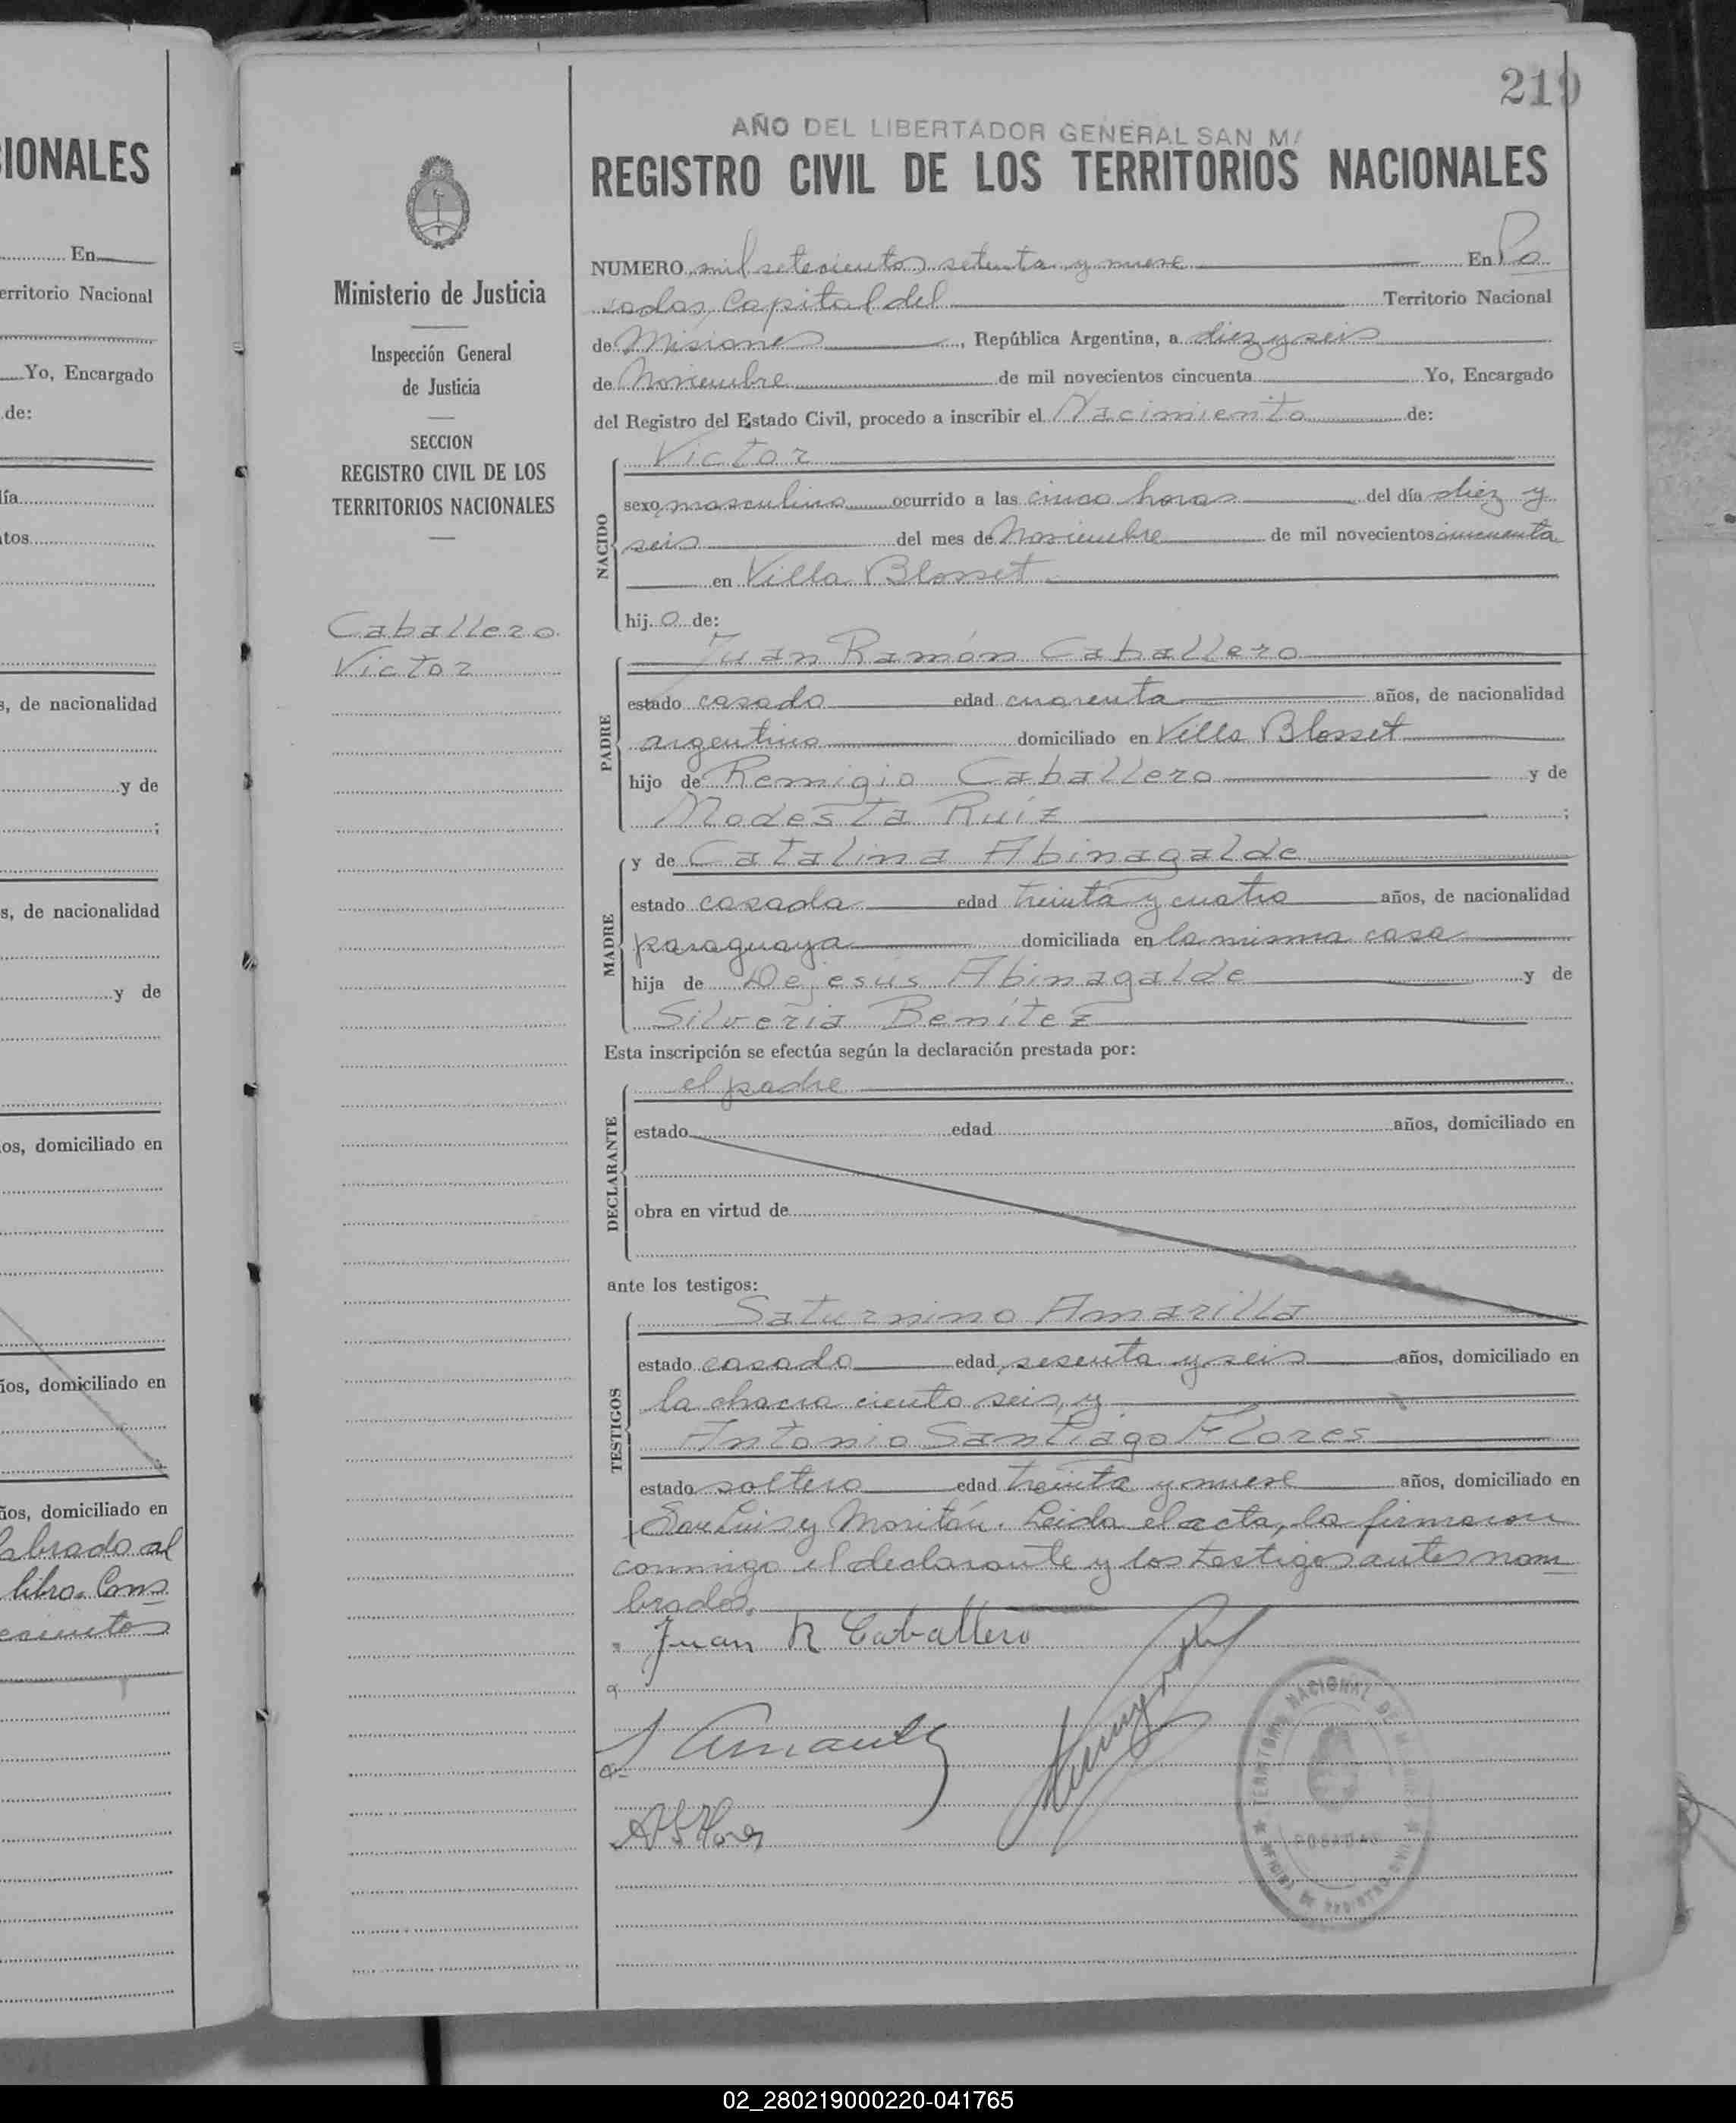 CIONALES
En
erritorio Nacional
Yo, Encargado
de:
día
tos
s, de nacionalidad
y de
;
s, de nacionalidad
y de
os, domiciliado en
ños, domiciliado en
ños, domiciliado en
labrado al
libro. Cons
219
AÑO DEL LIBERTADOR GENERAL SAN M
REGISTRO CIVIL DE LOS TERRITORIOS NACIONALES
Ministerio de Justicia
Inspección General
de Justicia
SECCION
REGISTRO CIVIL DE LOS
TERRITORIOS NACIONALES
Caballero
Victor
NUMERO mil setecientos setenta y nueve En Po
sadas, Capital del Territorio Nacional
de Misiones, República Argentina, a diez y seis
de Noviembre de mil novecientos cincuenta Yo, Encargado
del Registro del Estado Civil, procedo a inscribir el Nacimiento de:
NACIDO
Victor
sexo masculino ocurrido a las cinco horas del día diez y
seis del mes de Noviembre de mil novecientos cincuenta
en Villa Blosset
hij o de:
PADRE
Juan Ramón Caballero
estado casado edad cuarenta años, de nacionalidad
argentino domiciliado en Villa Blosset
hijo de Remigio Caballero y de
Modesta Ruíz ;
MADRE
y de Catalina Abinagalde
estado casada edad treinta y cuatro años, de nacionalidad
paraguaya domiciliada en la misma casa
hija de Dejesús Abinagalde y de
Silveria Benítez
Esta inscripción se efectúa según la declaración prestada por:
DECLARANTE
el padre
estado edad años, domiciliado en
obra en virtud de
ante los testigos:
TESTIGOS
Saturnino Amarilla
estado casado edad sesenta y seis años, domiciliado en
la chacra ciento seis, y
Antonio Santiago Flores
estado soltero edad treinta y nueve años, domiciliado en
San Luis y Moritán. Leída el acta, la firmaron
conmigo el declarante y los testigos antes nom
brados.
Juan R Caballero
A S Flores
TERRITORIO NACIONAL DE MISIONES
POSADAS
OFICINA DE REGISTRO CIVIL
02_280219000220-041765